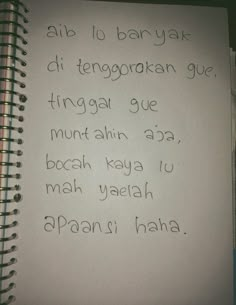 aib lo banyak
di tenggorokan gue,
tinggal gue
muntahin aja,
bocah kaya lu
mah yaelah
apaansi haha.